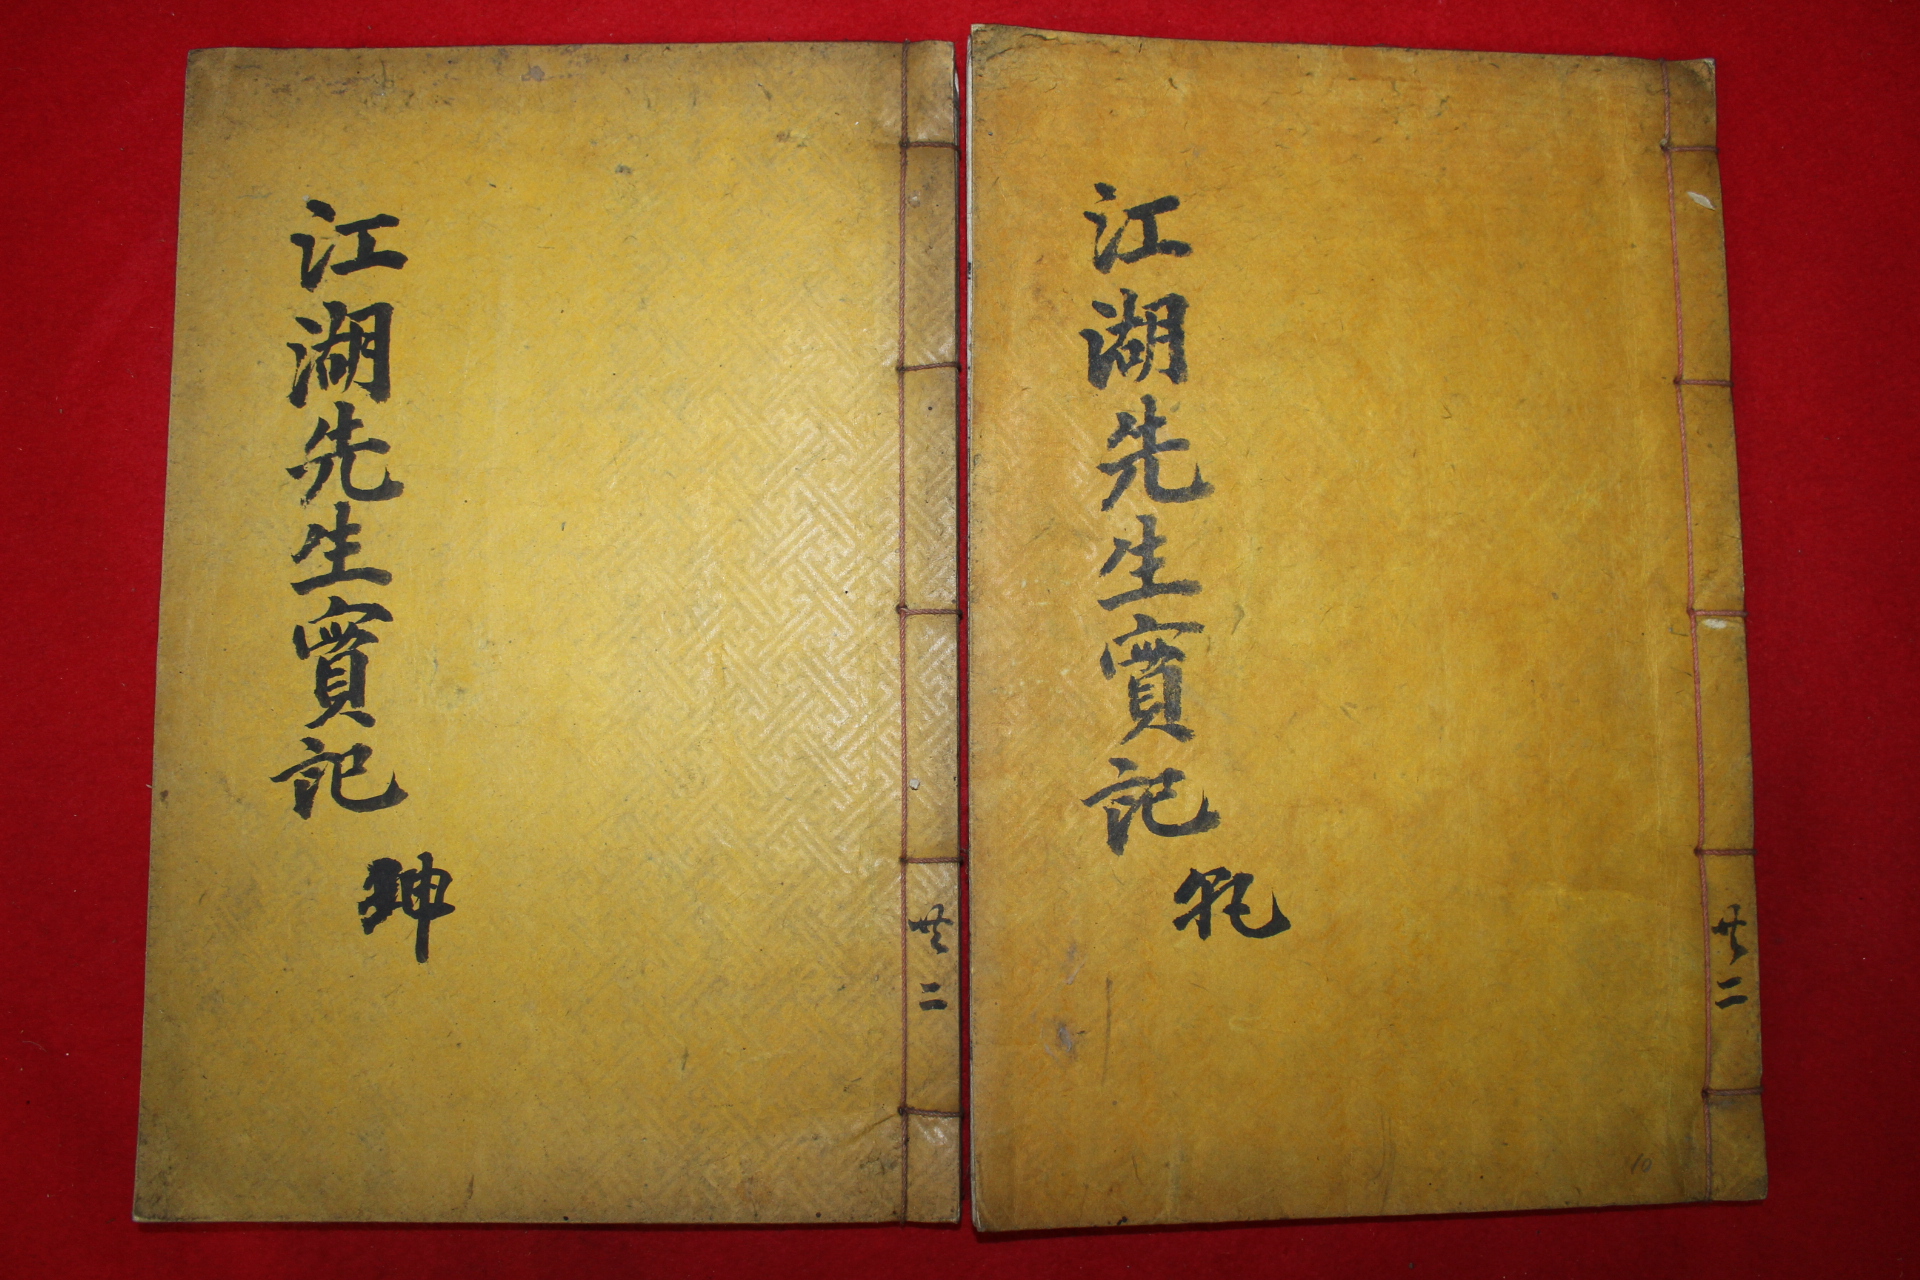 江湖先生實記
乾
共二
江湖先生實記
坤
共二